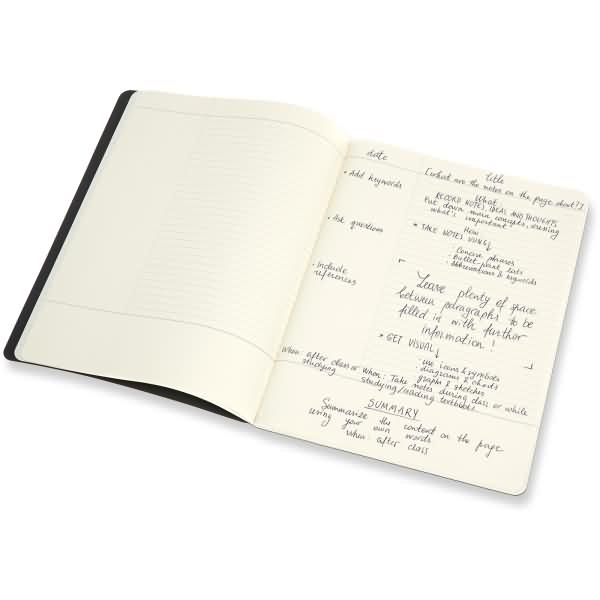 date
title
[what are the notes on the page about?]
• Add keywords
What
RECORD NOTES, IDEAS AND THOUGHTS
Put down main concepts, dressing
what's important
• Ask questions
How
* TAKE NOTES USING↓
· Concise phrases
· Bullet-point lists
· Abbreviations & keywords
• Include
references
Leave plenty of space
between paragraphs to be
filled in with further
information!
* GET VISUAL↓
· use icons & symbols
· diagrams & charts
· graphs & sketches
When: after class or
studying
When: Take notes during class or while
studying/reading textbooks
SUMMARY
Summarize the content on the page
using your own words
When: after class